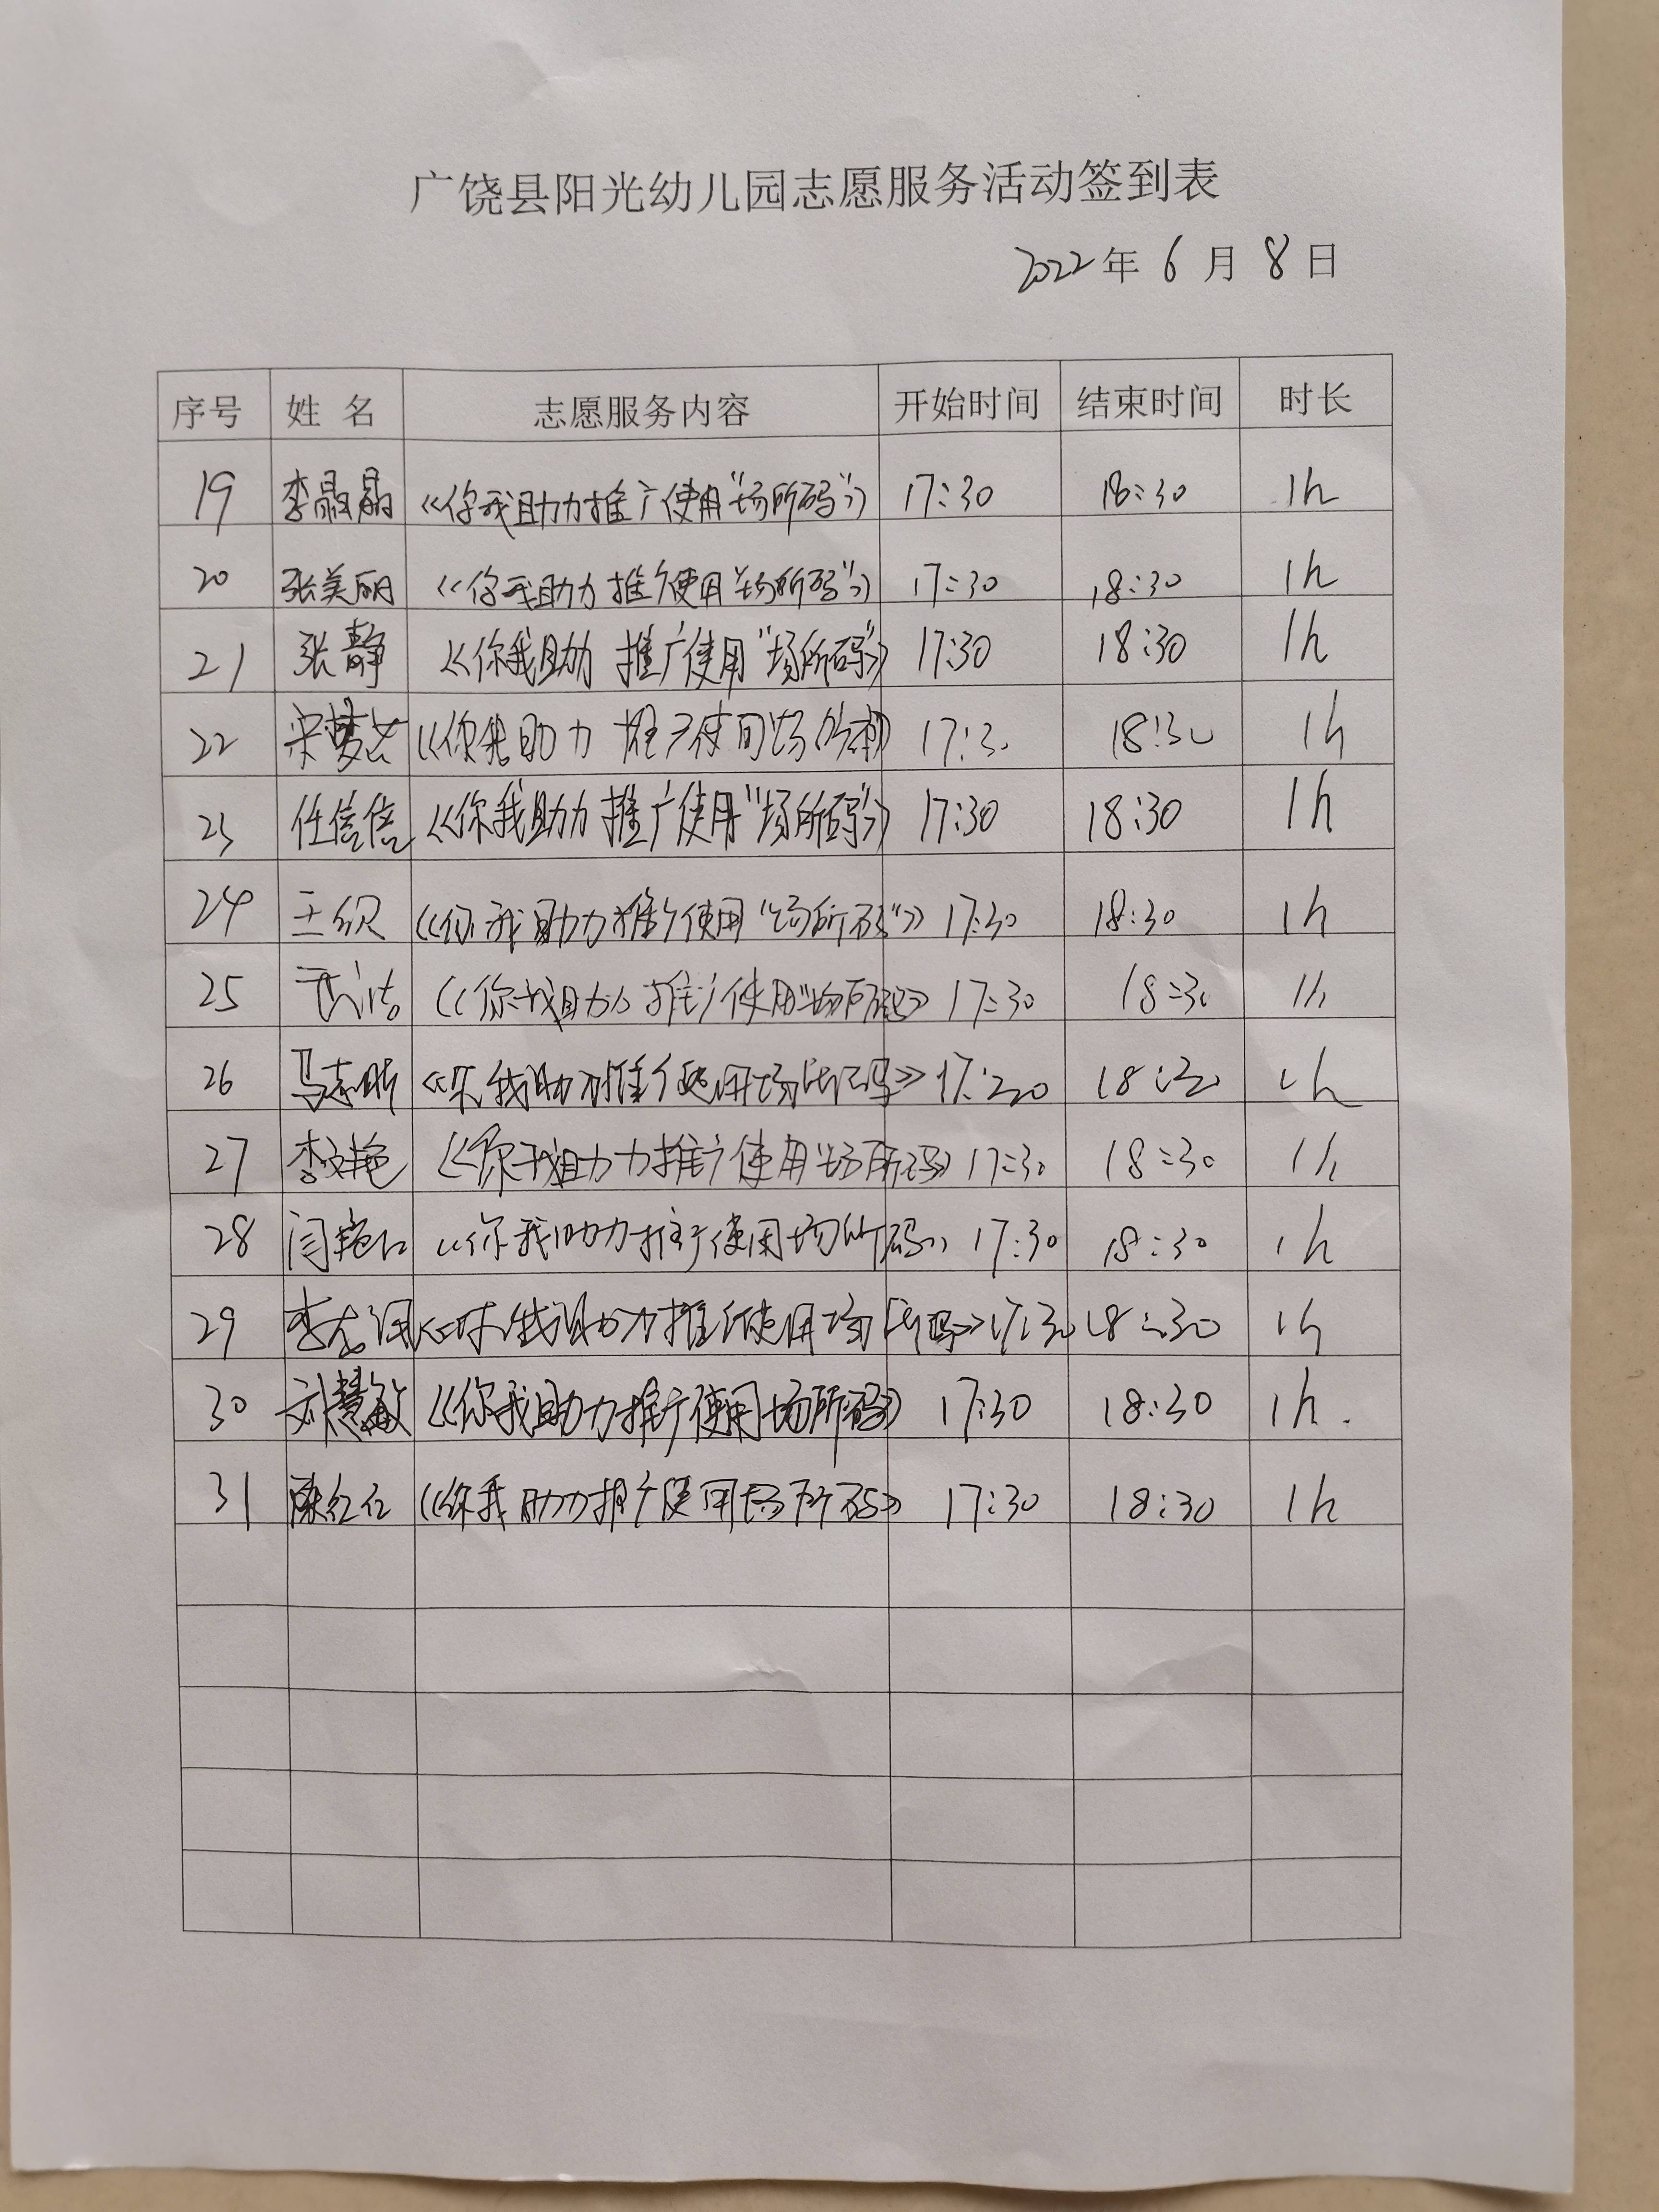 广饶县阳光幼儿园志愿服务活动签到表
2022年 6 月 8 日
序号 姓 名 志愿服务内容 开始时间 结束时间 时长
19 李晶晶 《你我助力推广使用“场所码”》 17:30 18:30 1h
20 张美丽 《你我助力 推广使用“场所码”》 17:30 18:30 1h
21 张静 《你我助力 推广使用“场所码”》 17:30 18:30 1h
22 宋梦芸 《你我助力 推广使用场所码》 17:30 18:30 1h
23 任信信 《你我助力 推广使用“场所码”》 17:30 18:30 1h
24 王 《你我助力推广使用“场所码”》 17:30 18:30 1h
25 《你我助力 推广使用“场所码》 17:30 18:30 1h
26 马志昕 《你我助力推广使用场所码》 17:30 18:30 1h
27 李文艳 《你我助力推广使用“场所码》 17:30 18:30 1h
28 闫艳红 《你我助力推广使用场所码》 17:30 18:30 1h
29 李 《你我助力推广使用场所码》 17:30 18:30 1h
30 刘慧敏 《你我助力推广使用场所码》 17:30 18:30 1h.
31 陈红红 《你我助力推广使用场所码》 17:30 18:30 1h